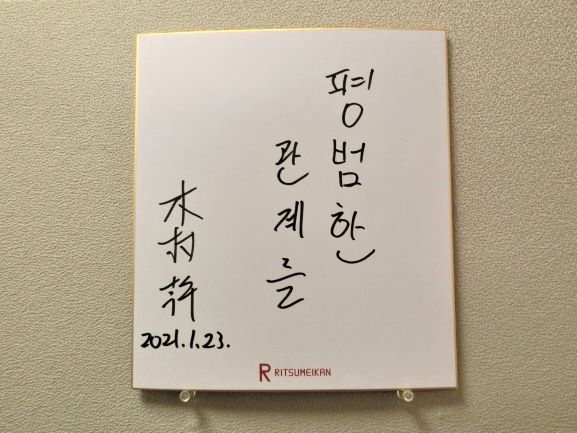 평범한
관계를
木村幹
2021.1.23.
R RITSUMEIKAN